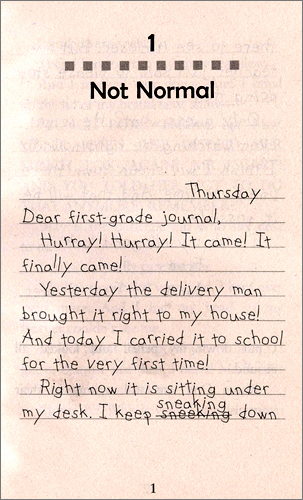 1
Not Normal
Thursday
Dear first-grade journal,
Hurray! Hurray! It came! It
finally came!
Yesterday the delivery man
brought it right to my house!
And today I carried it to school
for the very first time!
Right now it is sitting under
sneaking
my desk. I keep sneeking down
1